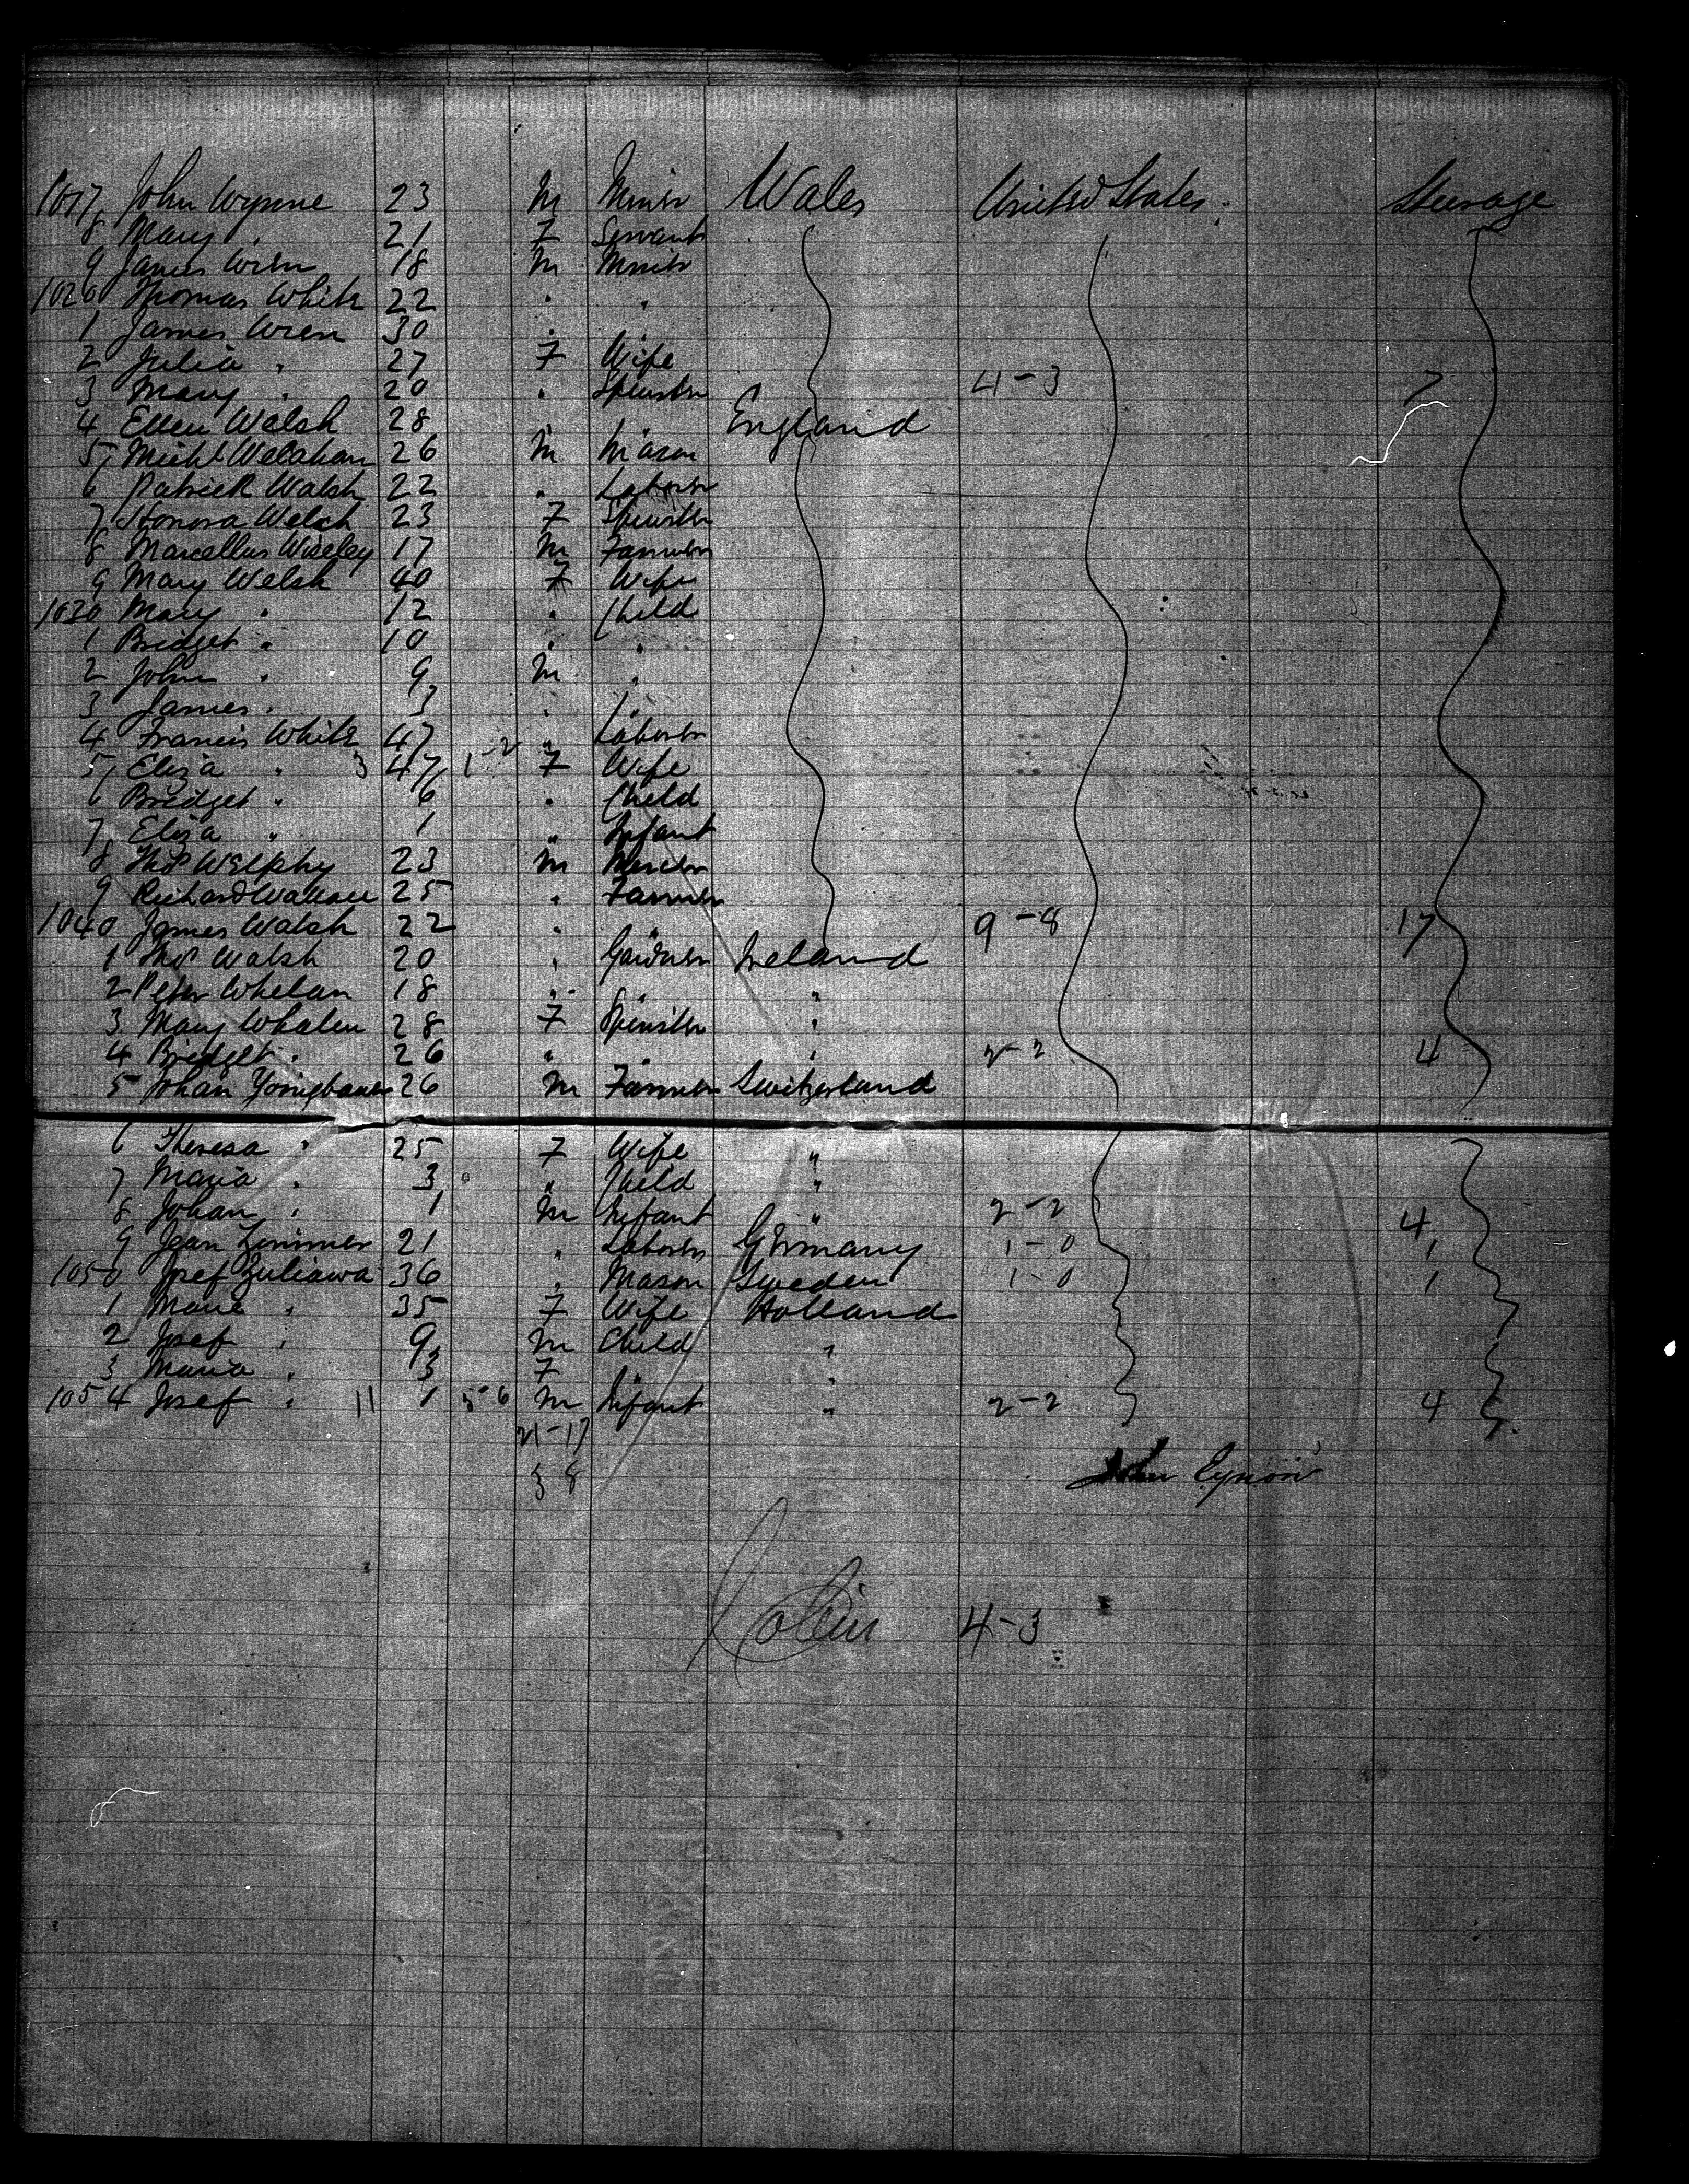 1017 John Wynne 23 M Miner Wales United States. Steerage
8 Mary " 21 F Servant
9 James Wren 18 M Miner
1020 Thomas White 22 " "
1 James Wren 30 "
2 Julia " 27 F Wife
3 Mary " 20 " Spinster 4-3 7
4 Ellen Welsh 28 " " England
5 Michl Welahan 26 M Mason
6 Patrick Walsh 22 " Laborer
7 Honora Welch 23 F Spinster
8 Marcellus Wiseley 17 M Farmer
9 Mary Welsh 40 F Wife
1030 Mary " 12 " Child
1 Bridget " 10 " "
2 John " 9 M "
3 James " 3 " "
4 Francis White 47 " Laborer
5 Eliza " 3 47 1-2 F Wife
6 Bridget " 6 " Child
7 Eliza " 1 " Infant
8 Thos Welphy 23 M
9 Richard Wallace 25 " Farmer
1040 James Walsh 22 " 9-8 17
1 Thos Walsh 20 " Gardner Ireland
2 Peter Whelan 18 " " "
3 Mary Whalen 28 F Spinster "
4 Bridget " 26 " " " 2-2 4
5 Johan 26 M Farmer Switzerland
6 Theresa " 25 F Wife "
7 Maria " 3 " Child "
8 Johan " 1 M Infant " 2-2 4
9 Jean Zimmer 21 " Laborer Germany 1-0 1
1050 Josef Zuliawa 36 " Mason Sweden 1-0 1
1 Marie " 35 F Wife Holland
2 Josef " 9 M Child "
3 Maria " 3 F " "
1054 Josef " 11 1 5-6 M Infant " 2-2 4
21-17
38
John Eynon
4-3